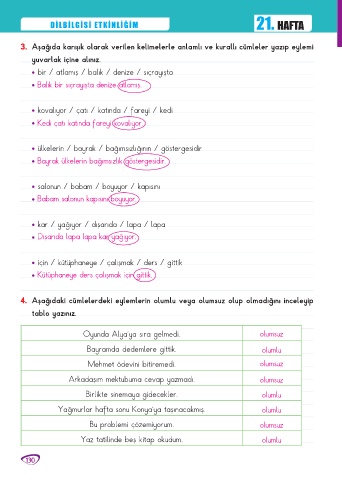 DİLBİLGİSİ ETKİNLİĞİM
21. HAFTA
3. Aşağıda karışık olarak verilen kelimelerle anlamlı ve kurallı cümleler yazıp eylemi
yuvarlak içine alınız.
• bir / atlamış / balık / denize / sıçrayışta
• Balık bir sıçrayışta denize atlamış.
• kovalıyor / çatı / katında / fareyi / kedi
• Kedi çatı katında fareyi kovalıyor.
• ülkelerin / bayrak / bağımsızlığının / göstergesidir
• Bayrak ülkelerin bağımsızlık göstergesidir.
• salonun / babam / boyuyor / kapısını
• Babam salonun kapısını boyuyor.
• kar / yağıyor / dışarıda / lapa / lapa
• Dışarıda lapa lapa kar yağıyor.
• için / kütüphaneye / çalışmak / ders / gittik
• Kütüphaneye ders çalışmak için gittik.
4. Aşağıdaki cümlelerdeki eylemlerin olumlu veya olumsuz olup olmadığını inceleyip
tablo yazınız.
Oyunda Alya'ya sıra gelmedi. olumsuz
Bayramda dedemlere gittik. olumlu
Mehmet ödevini bitiremedi. olumsuz
Arkadaşım mektubuma cevap yazmadı. olumsuz
Birlikte sinemaya gidecekler. olumlu
Yağmurlar hafta sonu Konya'ya taşınacakmış. olumlu
Bu problemi çözemiyorum. olumsuz
Yaz tatilinde beş kitap okudum. olumlu
130